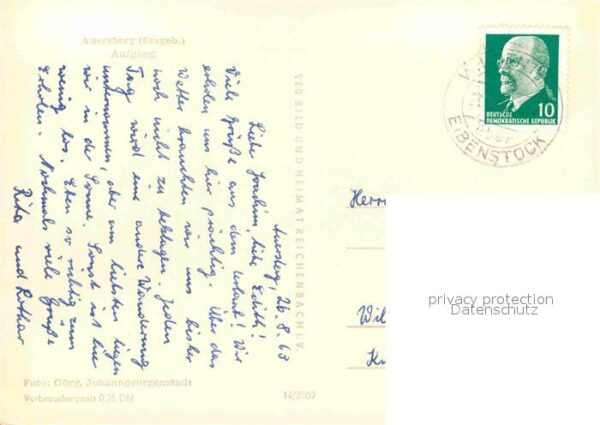 Auersberg (Erzgeb.)
Aufgang
Auersbg, 26.8.63
Liebe Joachim, liebe Edith!
Viele Grüße aus dem Urlaub! Wir
erholen uns hier prächtig. Über das
Wetter brauchten wir uns bisher
noch nicht zu beklagen. Jeden
Tag wird eine andere Wanderung
unternommen, aber am liebsten liegen
wir in der Sonne. Sonst ist hier
wenig los. Eben so richtig zum
Erholen. Nochmals viele Grüße
Rita und Lothar
Foto: Görg, Johanngeorgenstadt
Verbraucherpreis 0.25 DM
VEB BILD UND HEIMAT REICHENBACH I. V.
14/3500
DEUTSCHE
DEMOKRATISCHE REPUBLIK
10
EIBENSTOCK
Herrn
Wil
privacy protection
Datenschutz